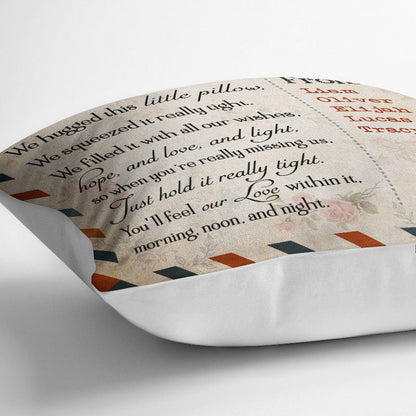 We hugged this little pillow,
We squeezed it really tight.
We filled it with all our wishes,
hope, and love, and light,
so when you're really missing us,
Just hold it really tight.
You'll feel our Love within it,
morning, noon, and night.
Liam
Oliver
Elijah
Lucas